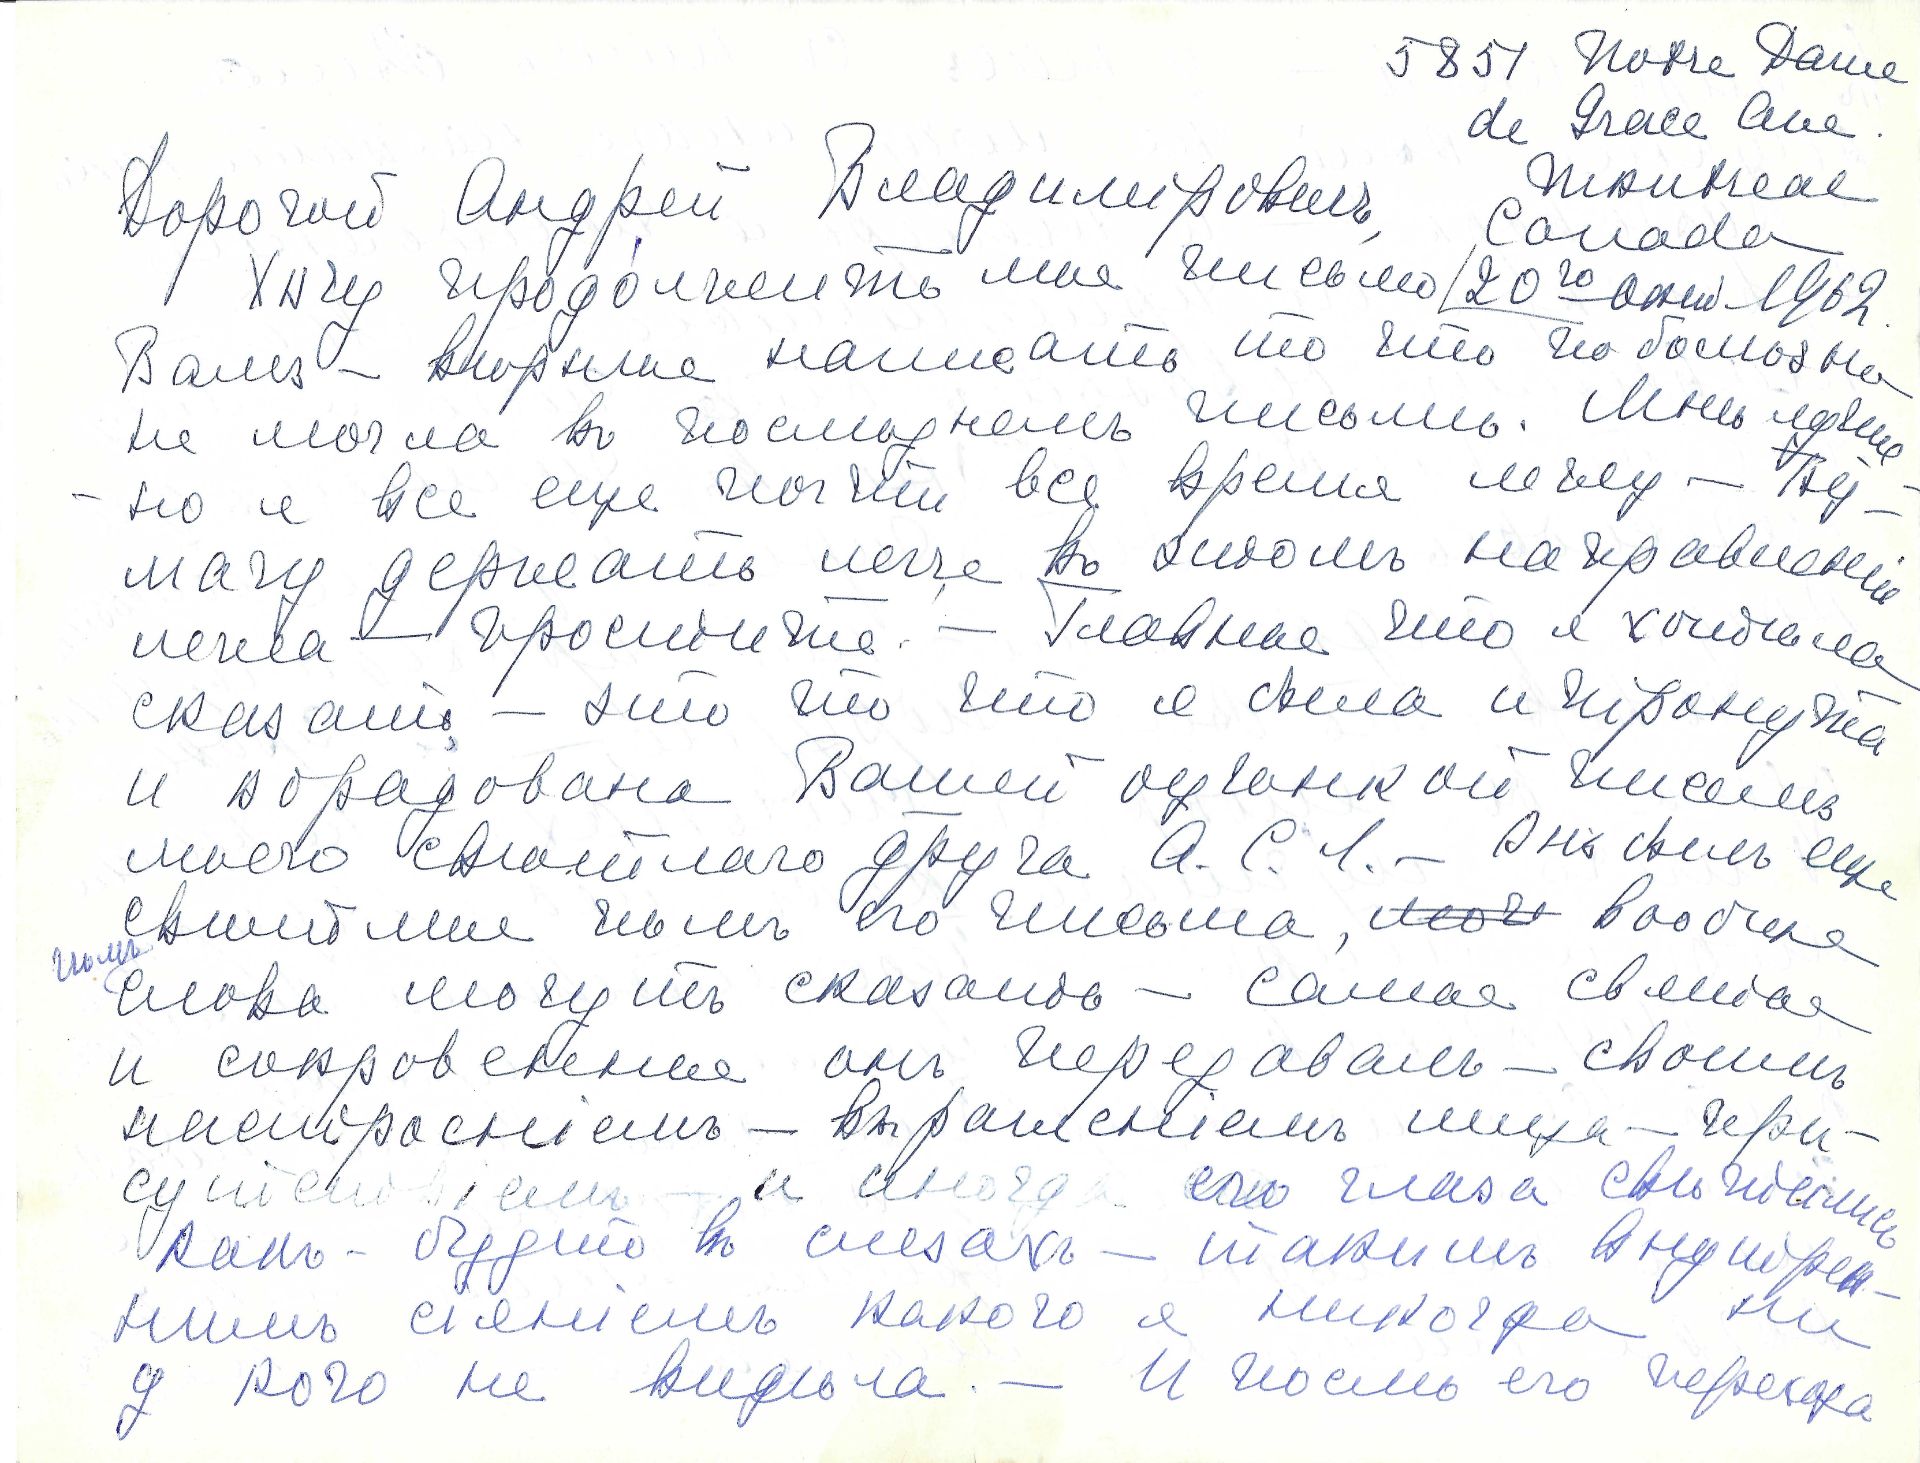 5851 Notre Dame
de Grace Ave.
Montreal
Canada
20го 1962.
Дорогой Андрей Владимiровичъ,
Хочу продолжить мое письмо
Вамъ – вѣрнѣе написать то что по болѣзни
не могла въ послѣднемъ письмѣ. Мнѣ лучше
– но я все еще почти все время лежу – бу-
магу держать легче въ этомъ направленiи
лежа – простите. – Главное что я хотѣла
сказать – это то что я была и тронута
и обрадована Вашей оцѣнкой писемъ
моего свѣтлаго друга А. С. Л. – Онъ былъ еще
свѣтлѣе чѣмъ его письма, вообще
чѣмъ
слова могутъ сказать – самое святое
и сокровенное онъ передавалъ – своимъ
настроенiемъ – выраженiемъ лица – при-
сутствiемъ – и иногда его глаза свѣтились
какъ-будто въ слезахъ – такимъ внутрен-
нимъ сiянiемъ какого я никогда ни
у кого не видѣла. – И послѣ его перехода